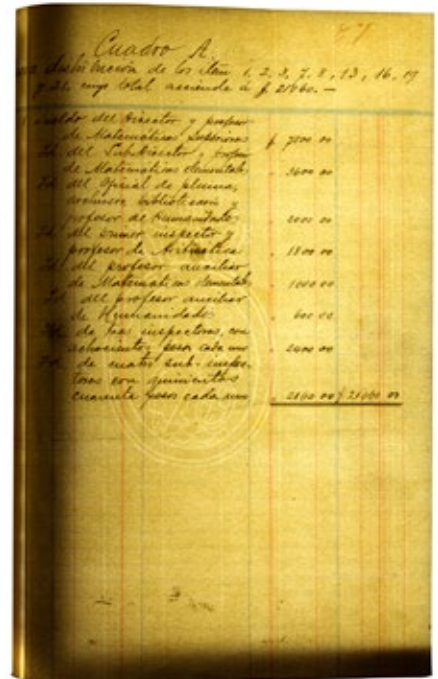 57
Cuadro A.
distribución de los item 1, 2, 3, 7, 8, 13, 16, 19
y 22, cuyo total asciende a $ 21060.—
Sueldo del Director y profesor
de Matemáticas Superiores $ 00 00
Id. del Subdirector y profesor
de Matemáticas elementales " 3600 00
Id. del oficial de pluma,
archivero bibliotecario y
profesor de Humanidades " 2000 00
Id. del primer inspector y
profesor de Aritmética " 1800 00
Id. del profesor auxiliar
de Matemáticas elementales " 1000 00
Id. del profesor auxiliar
de Humanidades " 600 00
Id. de tres inspectores, con
ochocientos pesos cada uno " 2400 00
Id. de cuatro sub-inspec-
tores con quinientos
cuarenta pesos cada uno " 2160 00 $ 21060 00